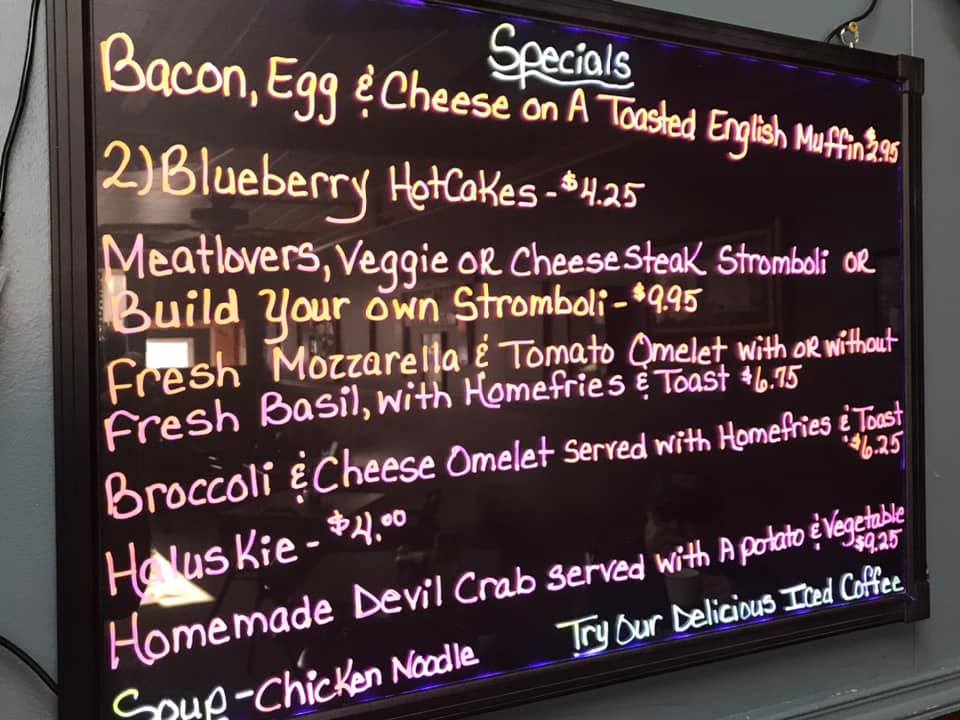 Specials
Bacon, Egg & Cheese on A Toasted English Muffin $2.95
2) Blueberry HotCakes - $4.25
Meatlovers, Veggie OR Cheese Steak Stromboli OR
Build Your own Stromboli - $9.95
Fresh Mozzarella & Tomato Omelet with OR without
Fresh Basil, with Homefries & Toast $6.75
Broccoli & Cheese Omelet Served with Homefries & Toast
$6.25
Haluskie - $4.00
Homemade Devil Crab Served with A potato & Vegetable
$9.25
Try Our Delicious Iced Coffee
Soup - Chicken Noodle